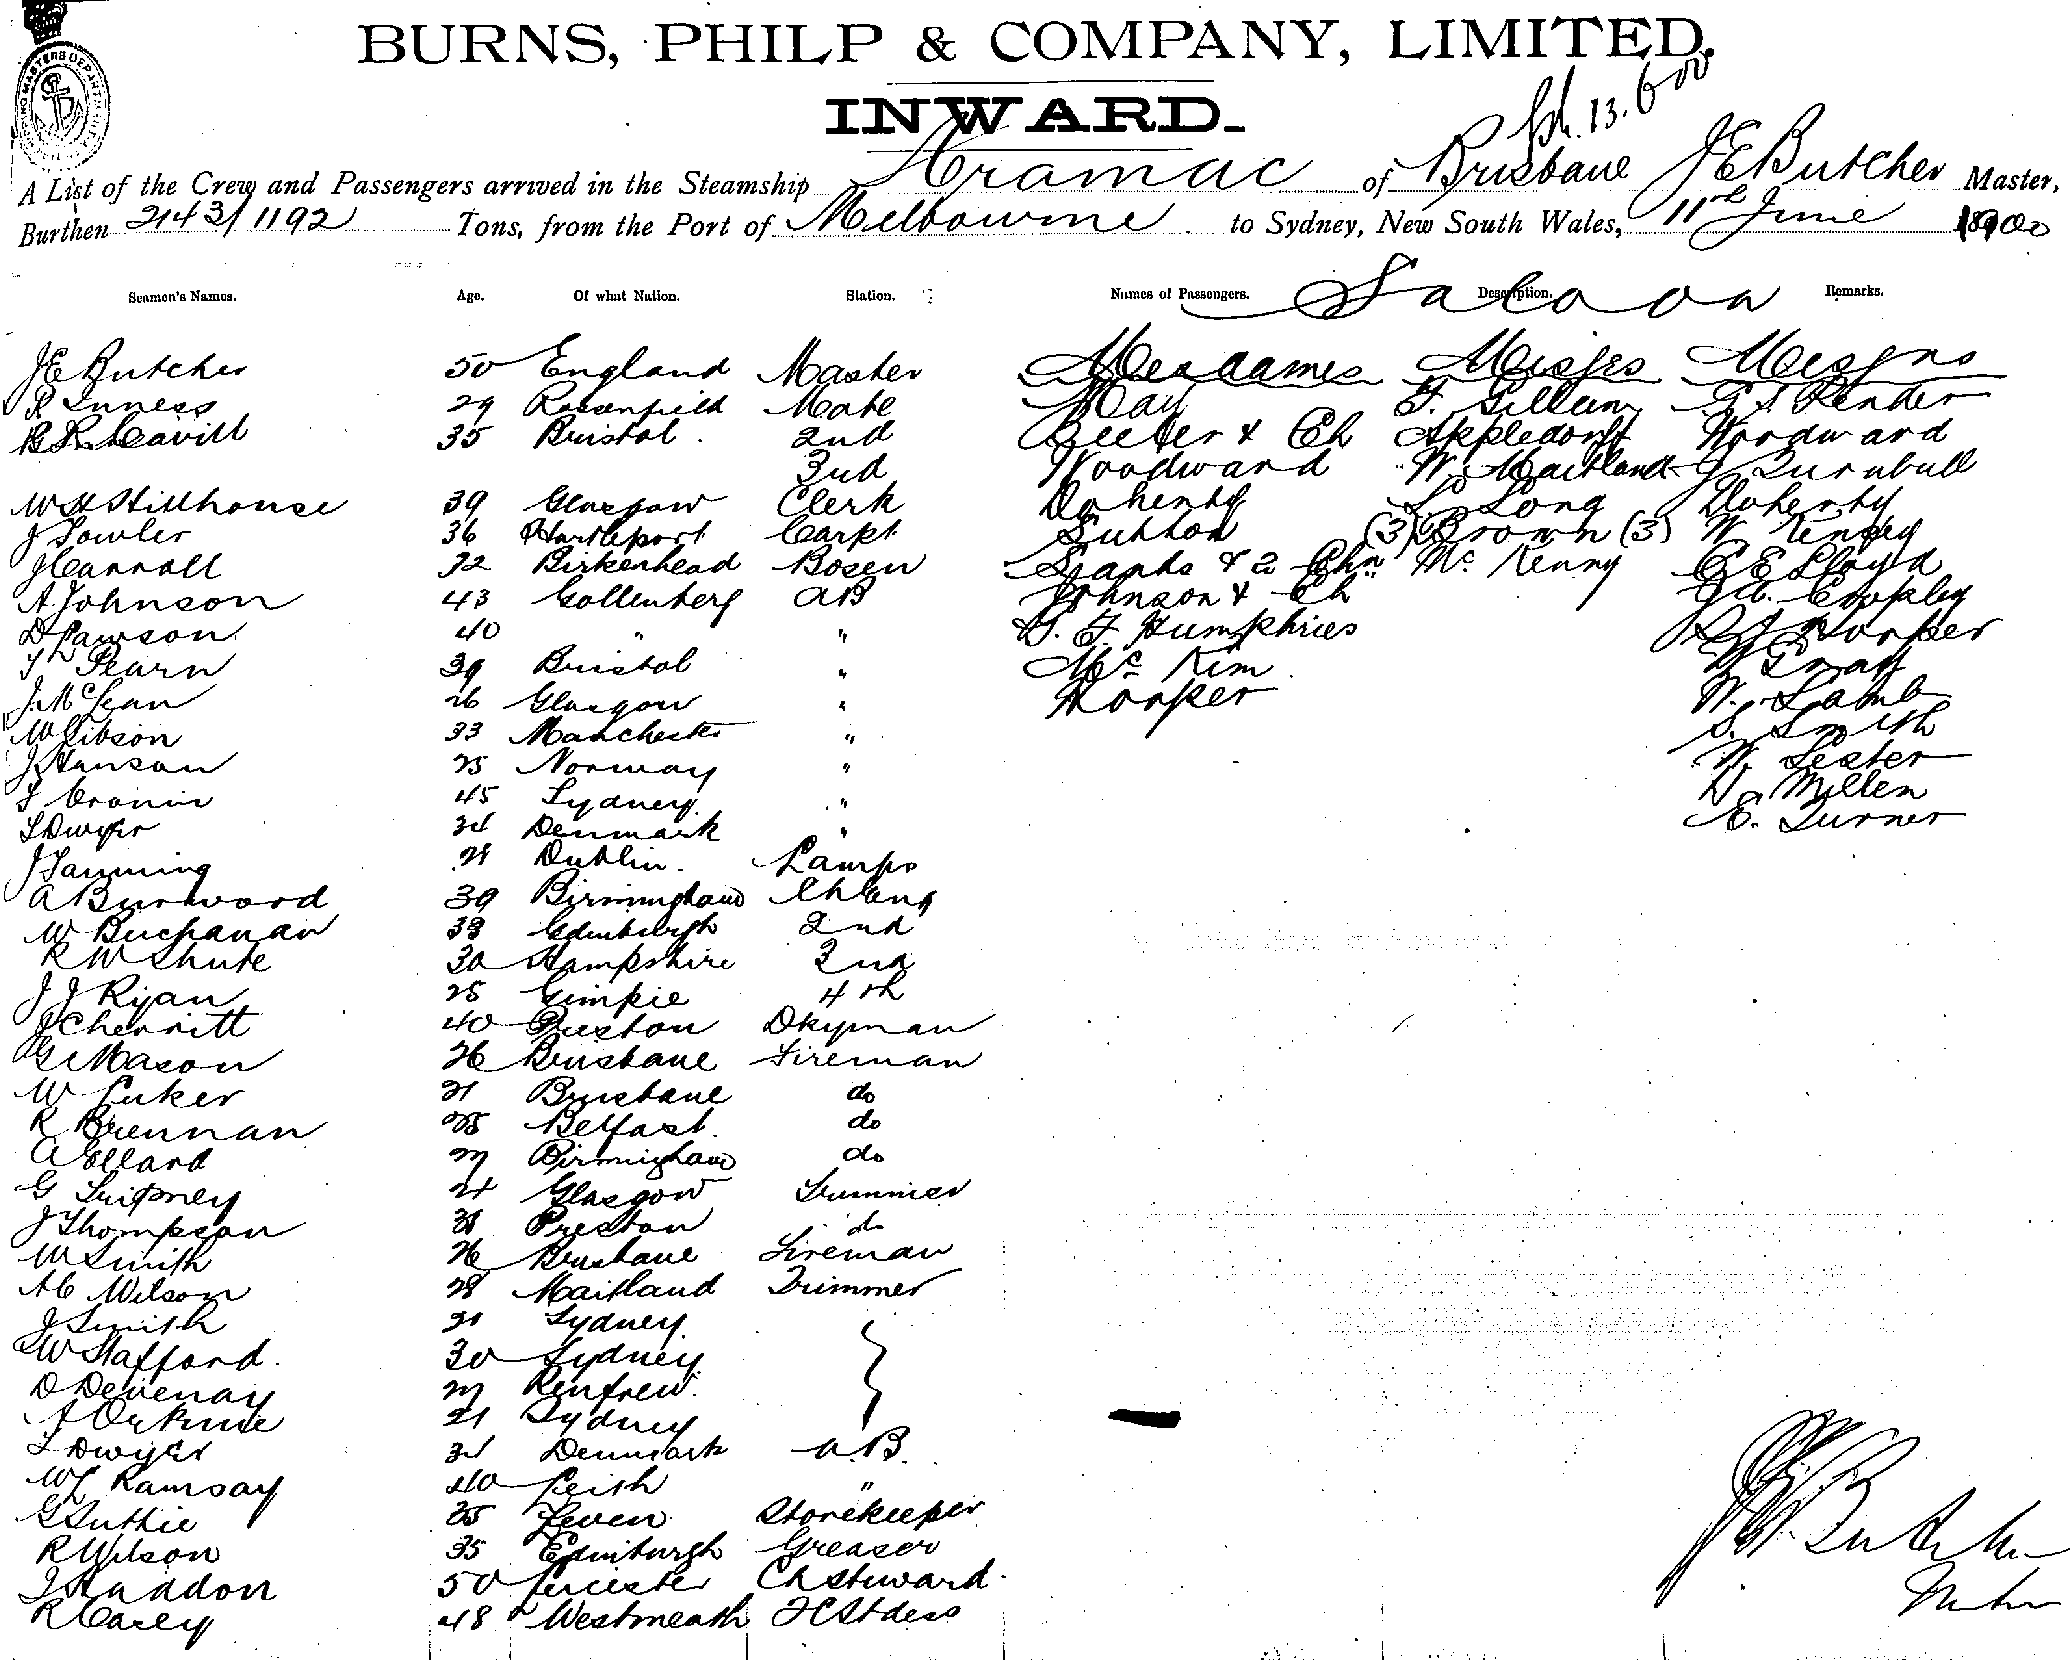 BURNS, PHILP & COMPANY, LIMITED.
INWARD.
13.6.00
A List of the Crew and Passengers arrived in the Steamship Aramac of Brisbane J E Butcher Master,
Burthen 2143/1192 Tons, from the Port of Melbourne to Sydney, New South Wales, 11th June 1900
Seamen's Names. Age. Of what Nation. Station. Names of Passengers. Description. Remarks.
Saloon
J E Butcher 50 England Master Mesdames Misses Messrs
R Inness 29 Mate May F. Gillum Render
Cavill 35 Bristol. 2nd & Ch Appledorff Woodward
3rd Woodward W. Maitland J Turnbull
W H Stillhouse 39 Glasgow Clerk Doherty L Long Doherty
J Fowler 36 Hartlepool Carpt. Sutton (3) Brown (3) W
J Carroll 32 Birkenhead Bosen & 2 Chn Mc Kenny C E Lloyd
A Johnson 43 Gollenberg AB Johnson & Ch
D Lawson 40 " " Humphries Hooper
Pearn 39 Bristol " Mc Kim W Gray
J. McLean 26 Glasgow " Hooper W. Lamb
W Gibson 33 Manchester " S. Smith
J Hanson 25 Norway " W. Lester
Cronin 45 Sydney " Millen
Dwyer 34 Denmark " E. Turner
J Fanning 21 Dublin. Lamps
A Burwood 39 Birmingham Ch Eng
W Buchanan 38 Edinburgh 2nd
R W Shute 30 Hampshire 3rd
J J Ryan 25 Gimpie 4th
J Cherritt 40 Preston Dkyman
G Mason 26 Brisbane Fireman
W Luker 21 Brisbane do
R Brennan 25 Belfast. do
A Ellard 27 Birmingham do
G 24 Glasgow Trimmer
J Thompson 31 Preston do
W Smith 26 Brisbane Fireman
Wilson 28 Maitland Trimmer
J Smith 21 Sydney
W Stafford. 30 Sydney
D Devenay 27 Renfrew.
21 Sydney
Dwyer 34 Denmark A.B.
Ramsay 40 Leith "
G Guthie 25 Leven Storekeeper
R Wilson 35 Edinburgh Greaser
Haddon 50 Leicester Ch Steward
R Casey 48 Westmeath F C Stdess
Butcher
Master